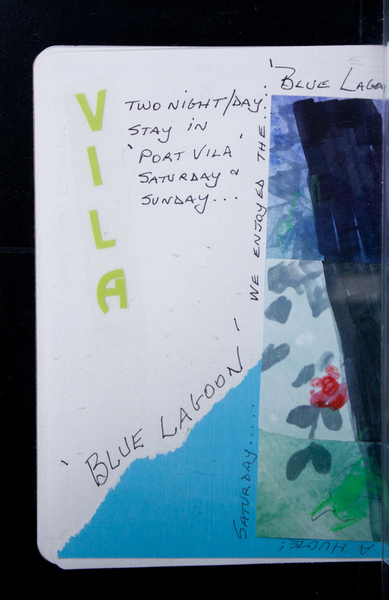 VILA
TWO NIGHT/DAY...
STAY IN
'PORT VILA'
SATURDAY &
SUNDAY...
'BLUE LAGOON'
SATURDAY..... WE ENJOYED THE...
'BLUE LAGO
A HUGE